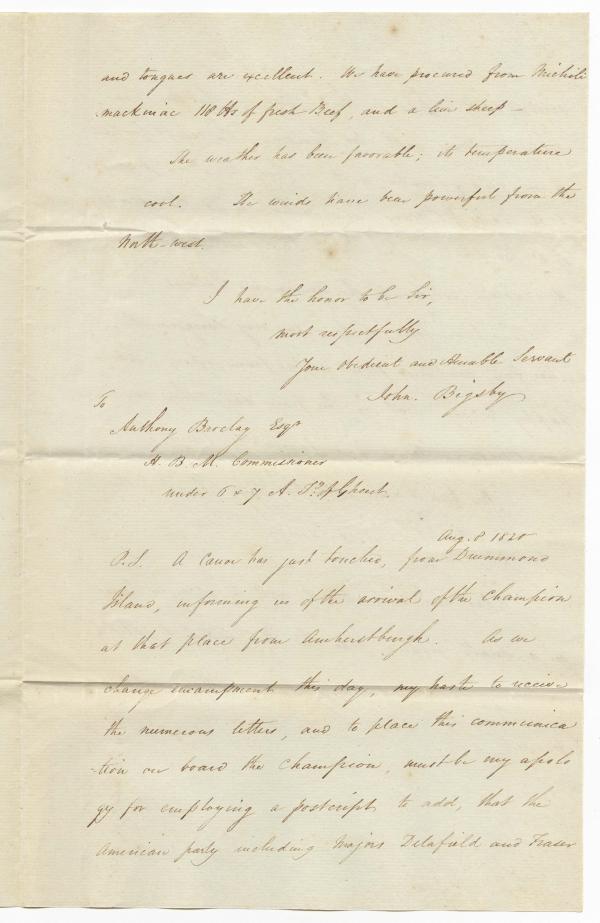 and tongues are excellent. We have procured from Michili
-mackinac 118 lbs of fresh Beef, and a live sheep -
The weather has been favorable; its temperature
cool. The winds have been powerful from the
North-west.
I have the honor to be Sir,
most respectfully
Your obedient and Humble Servant
John. Bigsby
To
Anthony Barclay Esqr
H. B. M. Commissioner
under 6 & 7 A. Ty of Ghent.
Aug. 8 1820
P.S. A Canoe has just touched, from Drummond
Island, informing us of the arrival of the Champion
at that place from Amherstburgh. As we
change encampment this day, my haste to receive
the numerous letters, and to place this communica
-tion on board the Champion, must be my apolo
gy for employing a postcript to add, that the
American party including Majors Delafield and Fraser